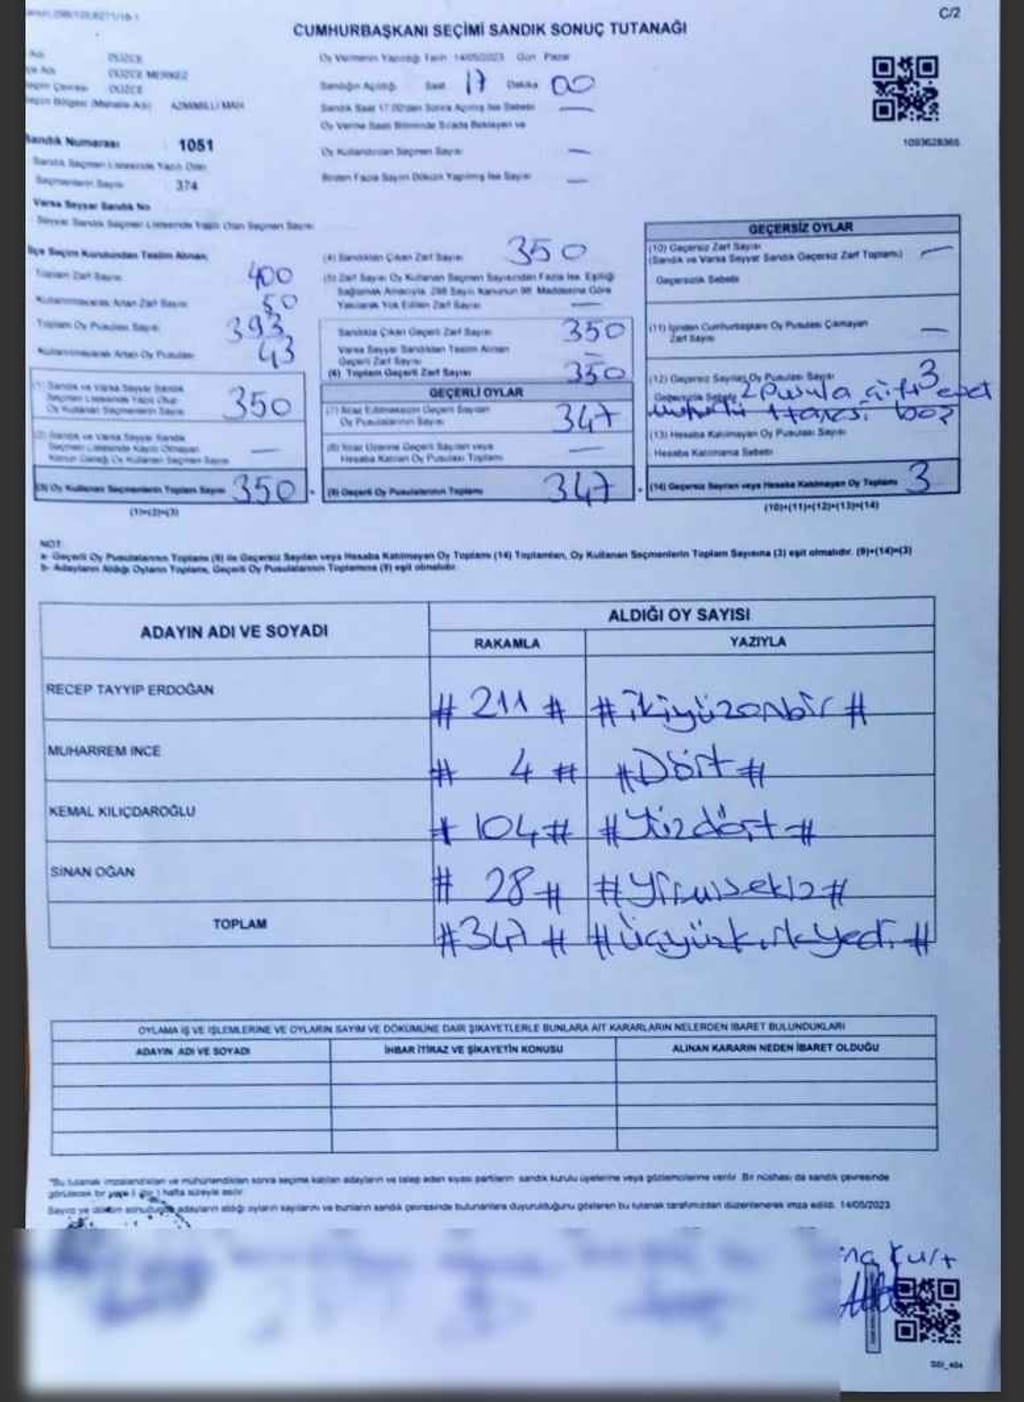 C/2
CUMHURBAŞKANI SEÇİMİ SANDIK SONUÇ TUTANAĞI
DÜZCE
Oy Vermenin Yapıldığı Tarih 14/05/2023 Gün Pazar
DÜZCE MERKEZ
Sandığın Açıldığı Saat 17 Dakika 00
DÜZCE
AZMİMİLLİ MAH.
Sandık Saat 17:00'den Sonra Açılmış İse Sebebi —
Oy Verme Saati Bitiminde Sırada Bekleyen ve
Oy Kullandırılan Seçmen Sayısı —
Birden Fazla Sayım Döküm Yapılmış İse Sayısı —
1093628365
Sandık Numarası 1051
Sandık Seçmen Listesinde Yazılı Olan
Seçmenlerin Sayısı 374
Varsa Seyyar Sandık No
Seyyar Sandık Seçmen Listesinde Yazılı Olan Seçmen Sayısı
İlçe Seçim Kurulundan Teslim Alınan
Toplam Zarf Sayısı 400
Kullanılmayarak Artan Zarf Sayısı 50
Toplam Oy Pusulası Sayısı 393
Kullanılmayarak Artan Oy Pusulası 43
(1) Sandık ve Varsa Seyyar Sandık
Seçmen Listesinde Yazılı Olup
Oy Kullanan Seçmenlerin Sayısı 350
(2) Sandık ve Varsa Seyyar Sandık
Seçmen Listesinde Kaydı Olmayan
Kanun Gereği Oy Kullanan Seçmen Sayısı —
(3) Oy Kullanan Seçmenlerin Toplam Sayısı 350
(1)+(2)=(3)
(4) Sandıktan Çıkan Zarf Sayısı 350
(5) Zarf Sayısı Oy Kullanan Seçmen Sayısından Fazla İse, Eşitliği
Sağlamak Amacıyla, 298 Sayılı Kanunun 98. Maddesine Göre
Yakılarak Yok Edilen Zarf Sayısı —
Sandıkta Çıkan Geçerli Zarf Sayısı 350
Varsa Seyyar Sandıktan Teslim Alınan
Geçerli Zarf Sayısı —
(6) Toplam Geçerli Zarf Sayısı 350
GEÇERLİ OYLAR
(7) İtiraz Edilmeksizin Geçerli Sayılan
Oy Pusulalarının Sayısı 347
(8) İtiraz Üzerine Geçerli Sayılan veya
Hesaba Katılan Oy Pusulası Toplamı —
(9) Geçerli Oy Pusulalarının Toplamı 347
GEÇERSİZ OYLAR
(10) Geçersiz Zarf Sayısı
(Sandık ve Varsa Seyyar Sandık Geçersiz Zarf Toplamı) —
Geçersizlik Sebebi
(11) İçinden Cumhurbaşkanı Oy Pusulası Çıkmayan
Zarf Sayısı —
(12) Geçersiz Sayılan Oy Pusulası Sayısı 3
Geçersizlik Sebebi 2 Pusula çift evet
mühürlü 1 tanesi boş
(13) Hesaba Katılmayan Oy Pusulası Sayısı
Hesaba Katılmama Sebebi
(14) Geçersiz Sayılan veya Hesaba Katılmayan Oy Toplamı 3
(10)+(11)+(12)+(13)=(14)
NOT:
a- Geçerli Oy Pusulalarının Toplamı (9) ile Geçersiz Sayılan veya Hesaba Katılmayan Oy Toplamı (14) Toplamları, Oy Kullanan Seçmenlerin Toplam Sayısına (3) eşit olmalıdır. (9)+(14)=(3)
b- Adayların Aldığı Oyların Toplamı, Geçerli Oy Pusulalarının Toplamına (9) eşit olmalıdır.
ADAYIN ADI VE SOYADI ALDIĞI OY SAYISI
RAKAMLA YAZIYLA
RECEP TAYYİP ERDOĞAN # 211 # # ikiyüzonbir #
MUHARREM İNCE # 4 # # Dört #
KEMAL KILIÇDAROĞLU # 104 # # Yüzdört #
SİNAN OĞAN # 28 # # Yirmisekiz #
TOPLAM # 347 # # Üçyüzkırkyedi #
OYLAMA İŞ VE İŞLEMLERİNE VE OYLARIN SAYIM VE DÖKÜMÜNE DAİR ŞİKAYETLERLE BUNLARA AİT KARARLARIN NELERDEN İBARET BULUNDUKLARI
ADAYIN ADI VE SOYADI İHBAR İTİRAZ VE ŞİKAYETİN KONUSU ALINAN KARARIN NEDEN İBARET OLDUĞU
*Bu tutanak imzalandıktan ve mühürlendikten sonra seçime katılan adayların ve talep eden siyasi partilerin sandık kurulu üyelerine veya gözlemcilerine verilir. Bir nüshası da sandık çevresinde
görülecek bir yere 1 (bir) hafta süreyle asılır.
Sayım ve döküm sonucuna adayların aldığı oyların sayılarını ve bunların sandık çevresinde bulunanlara duyurulduğunu gösteren bu tutanak tarafımızdan düzenlenerek imza edildi. 14/05/2023
Kurt